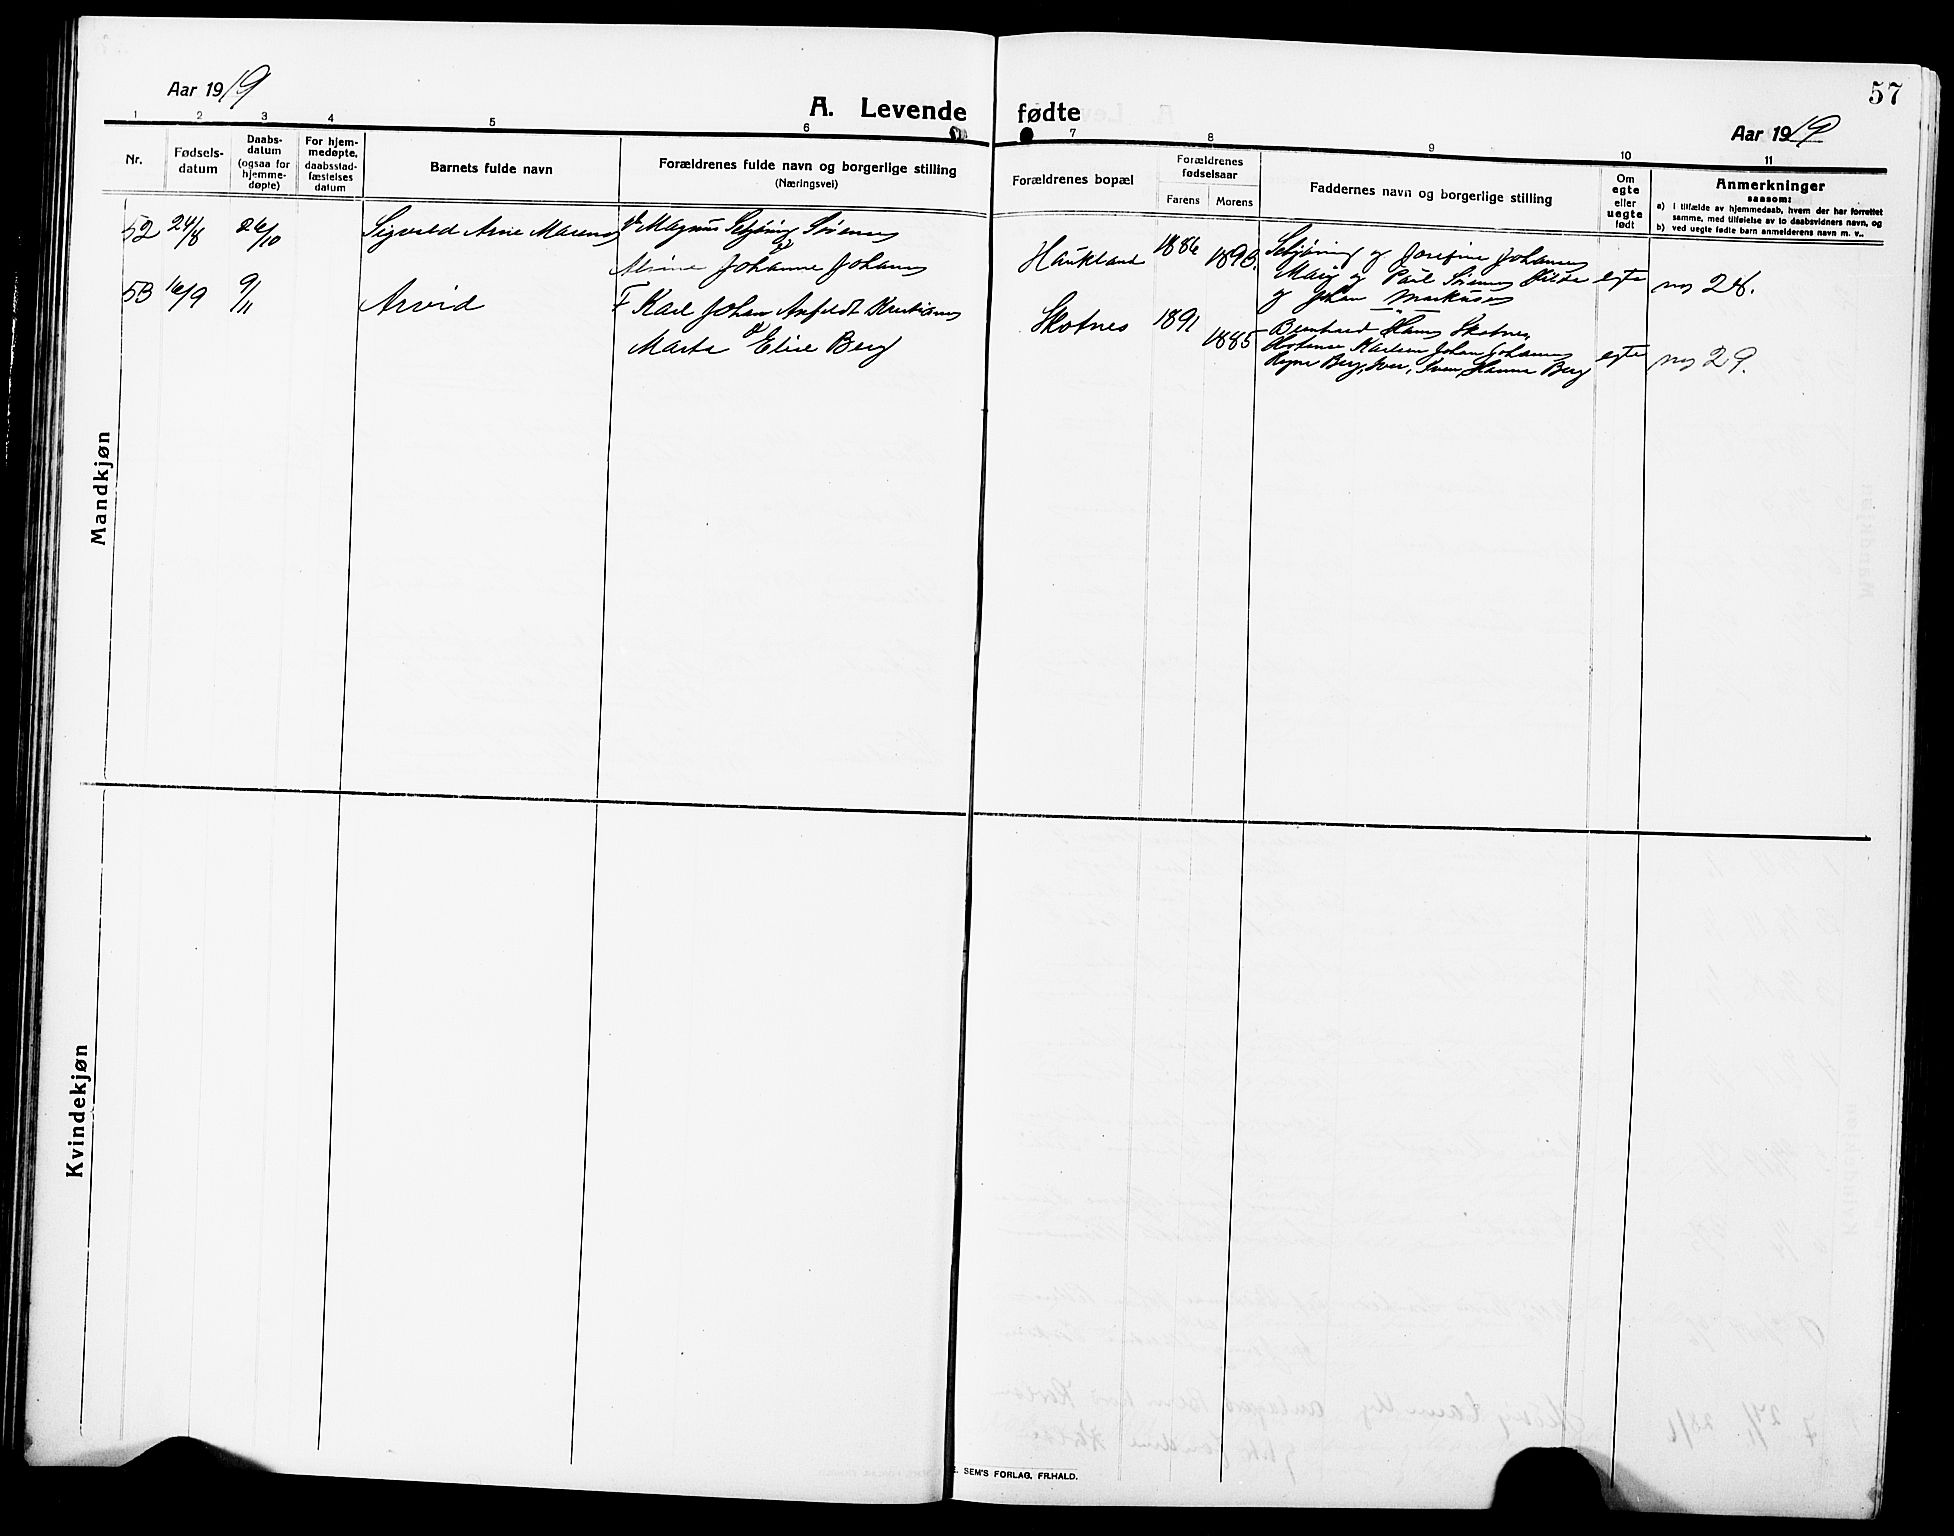 57
Aar 1919
A. Levende fødte
Aar 1919
1 2 3 4 5 6 7 8 9 10 11
Nr.
Fødsels-
datum
Daabs-
datum
(ogsaa for
hjemme-
døpte)
For hjem-
medøpte,
daabsstad-
fæstelses
datum
Barnets fulde navn
Forældrenes fulde navn og borgerlige stilling
(Næringsvei)
Forældrenes bopæl
Forældrenes
fødselsaar
Farens Morens
Faddernes navn og borgerlige stilling
Om
egte
eller
uegte
født
Anmerkninger
saasom:
a) i tilfælde av hjemmedaab, hvem der har forrettet
samme, med tilføielse av to daabsvidners navn, og
b) ved uegte fødte barn anmelderens navn m. v..
Mandkjøn
52 24/8 26/10 Sigvald Arne Magnus Schjöning Sörensen
Johanne Johans
Haukland 1886 1893
Schjöning og Josefine Johansen
og Paul Sörensen
og Johan Markusen
egte
no 28.
53 16/9 9/11 Arvid
F Karl Johan Anfeldt Kristians
Marta Elise Berg
Skotnes 1891 1885
Bernhard Hans Skotnes,
Karlsen Johan Johansen
Berg, Iver, Sven, Hanna Berg
egte
no 29.
Kvindekjøn
E. SEM'S FORLAG, FR.HALD.